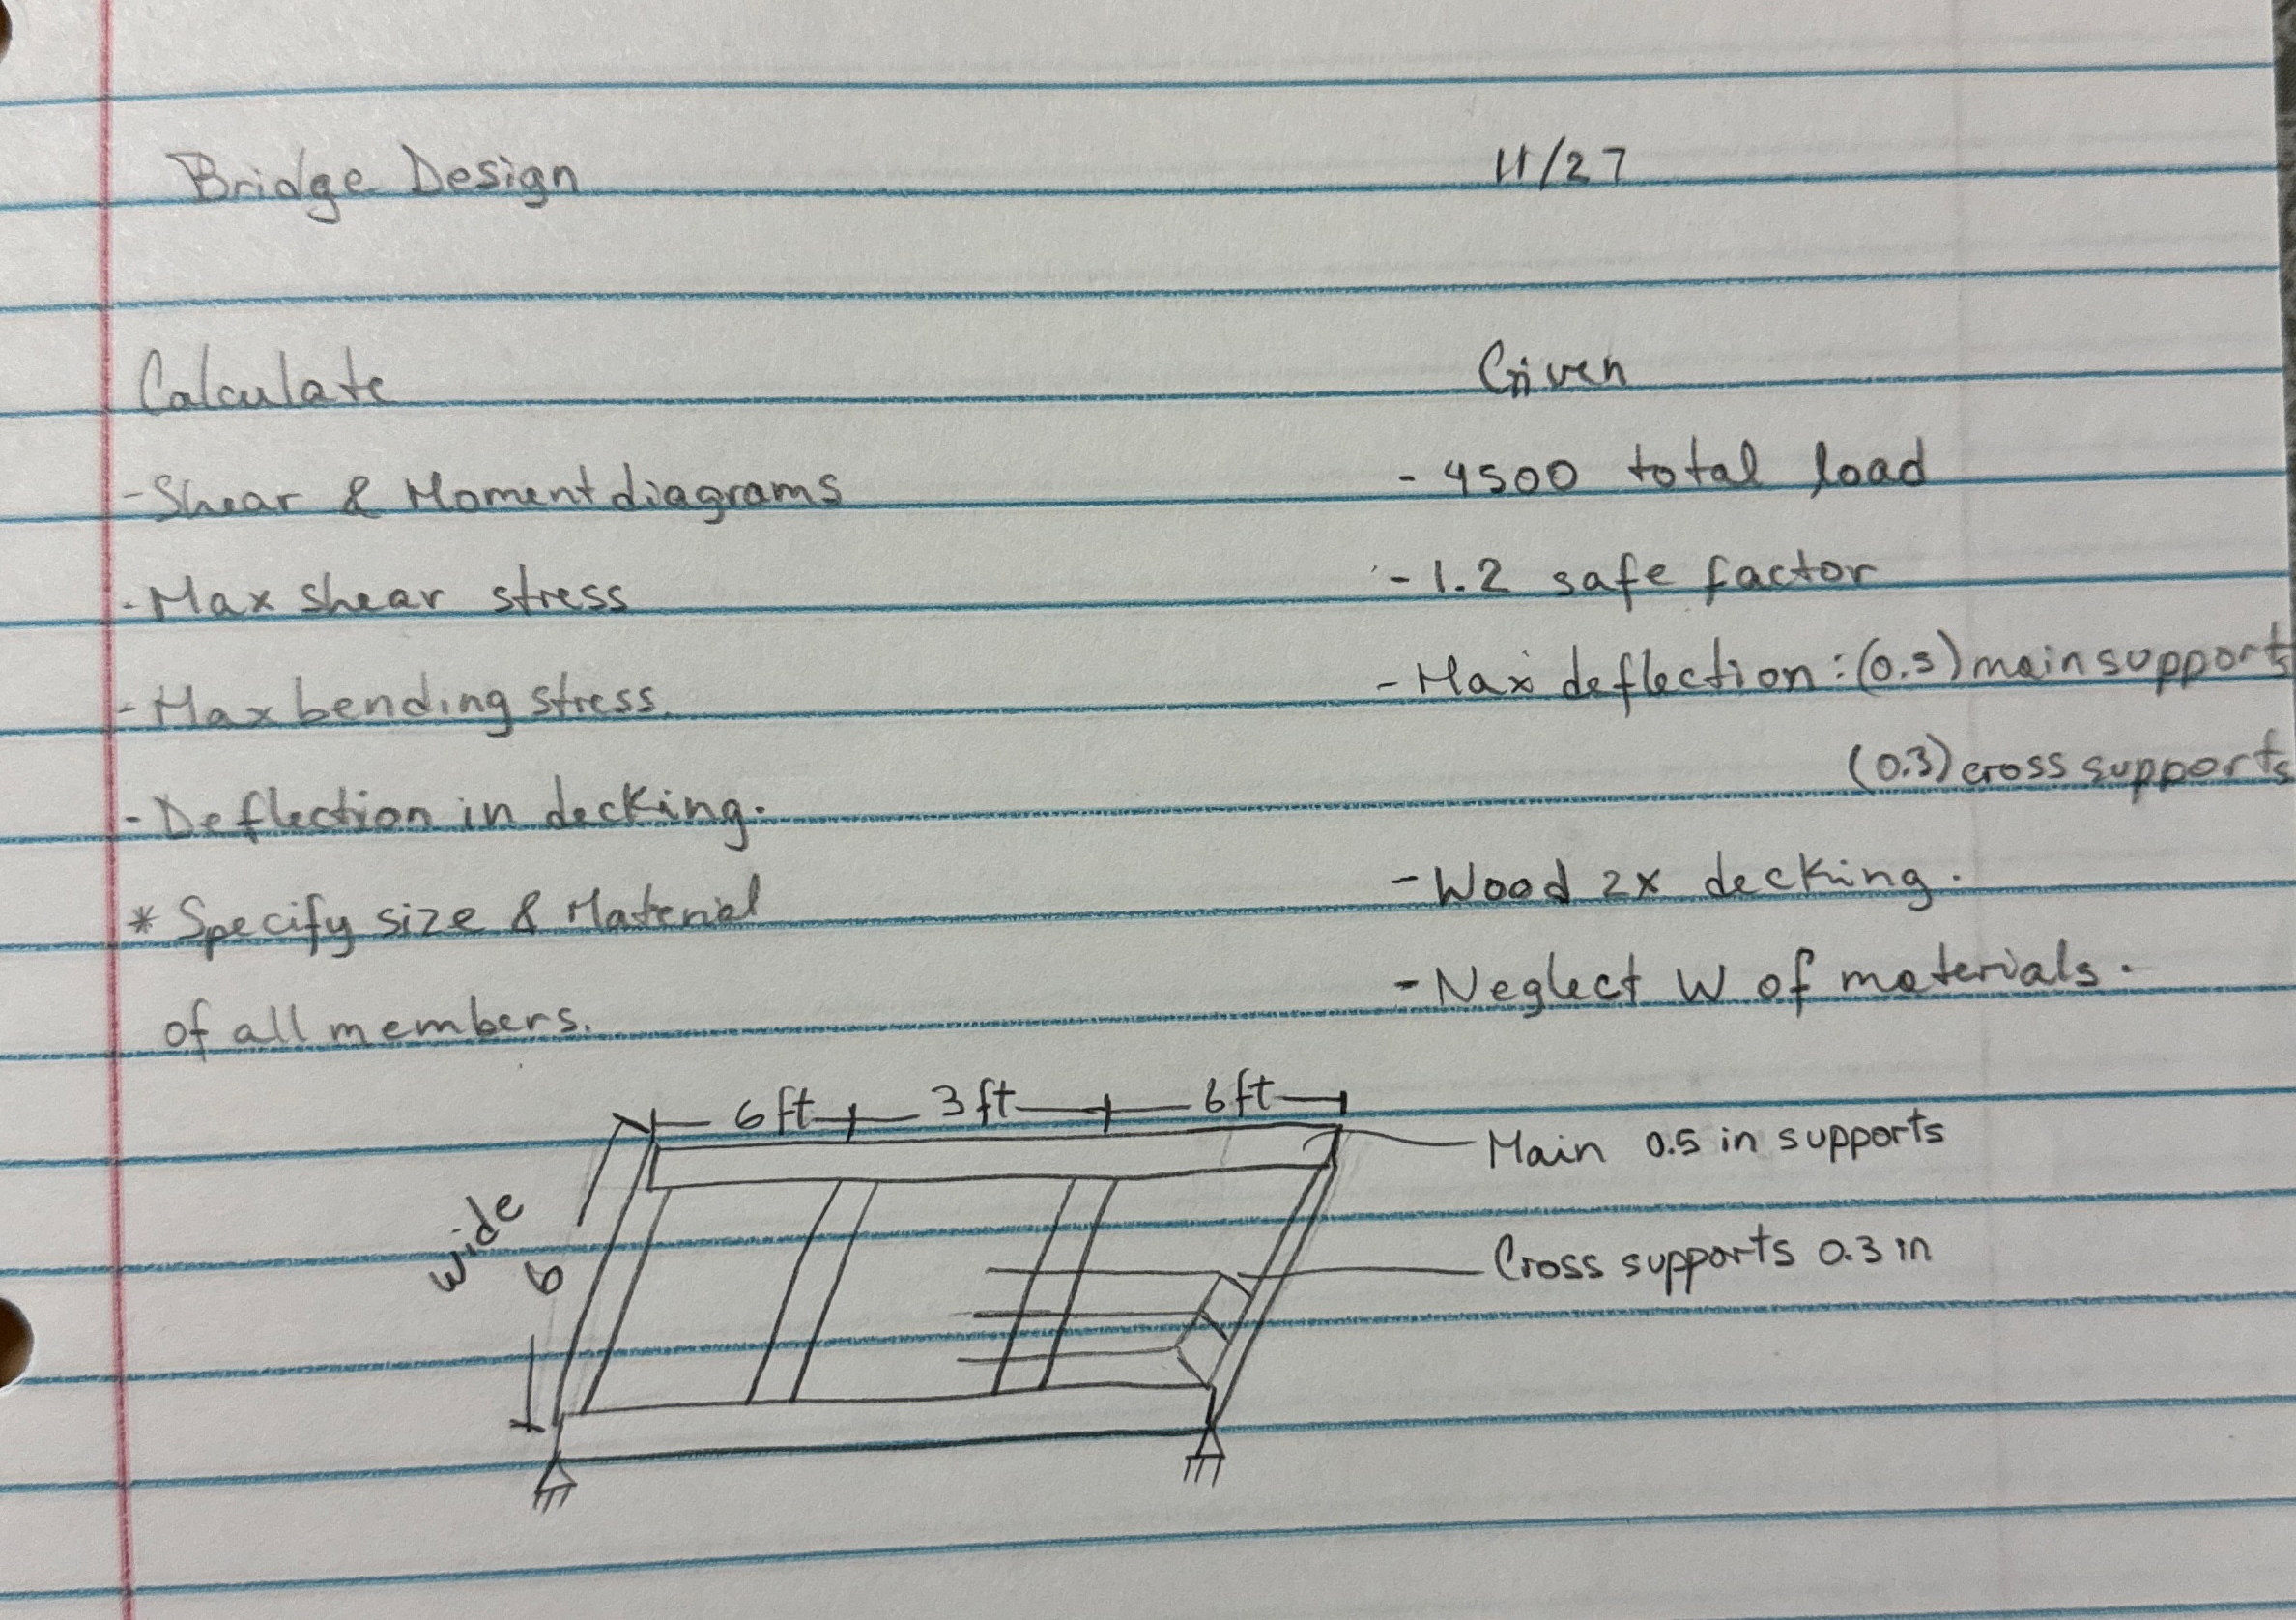 Bridge Design 11/27
Calculate Given
- Shear & Moment diagrams - 4500 total load
- Max shear stress - 1.2 safe factor
- Max bending stress. - Max deflection : (0.5) main supports
(0.3) cross supports
- Deflection in decking.
- Wood 2x decking.
* Specify size & Material
- Neglect W of materials.
of all members.
6 ft 3 ft 6 ft
Main 0.5 in supports
wide 6
Cross supports 0.3 in